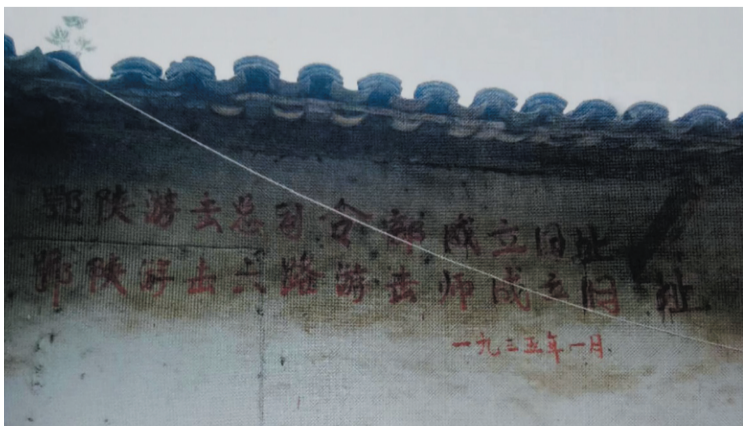 鄂陕游击总司令部成立旧址
鄂陕游击六路游击师成立旧址
一九三五年一月